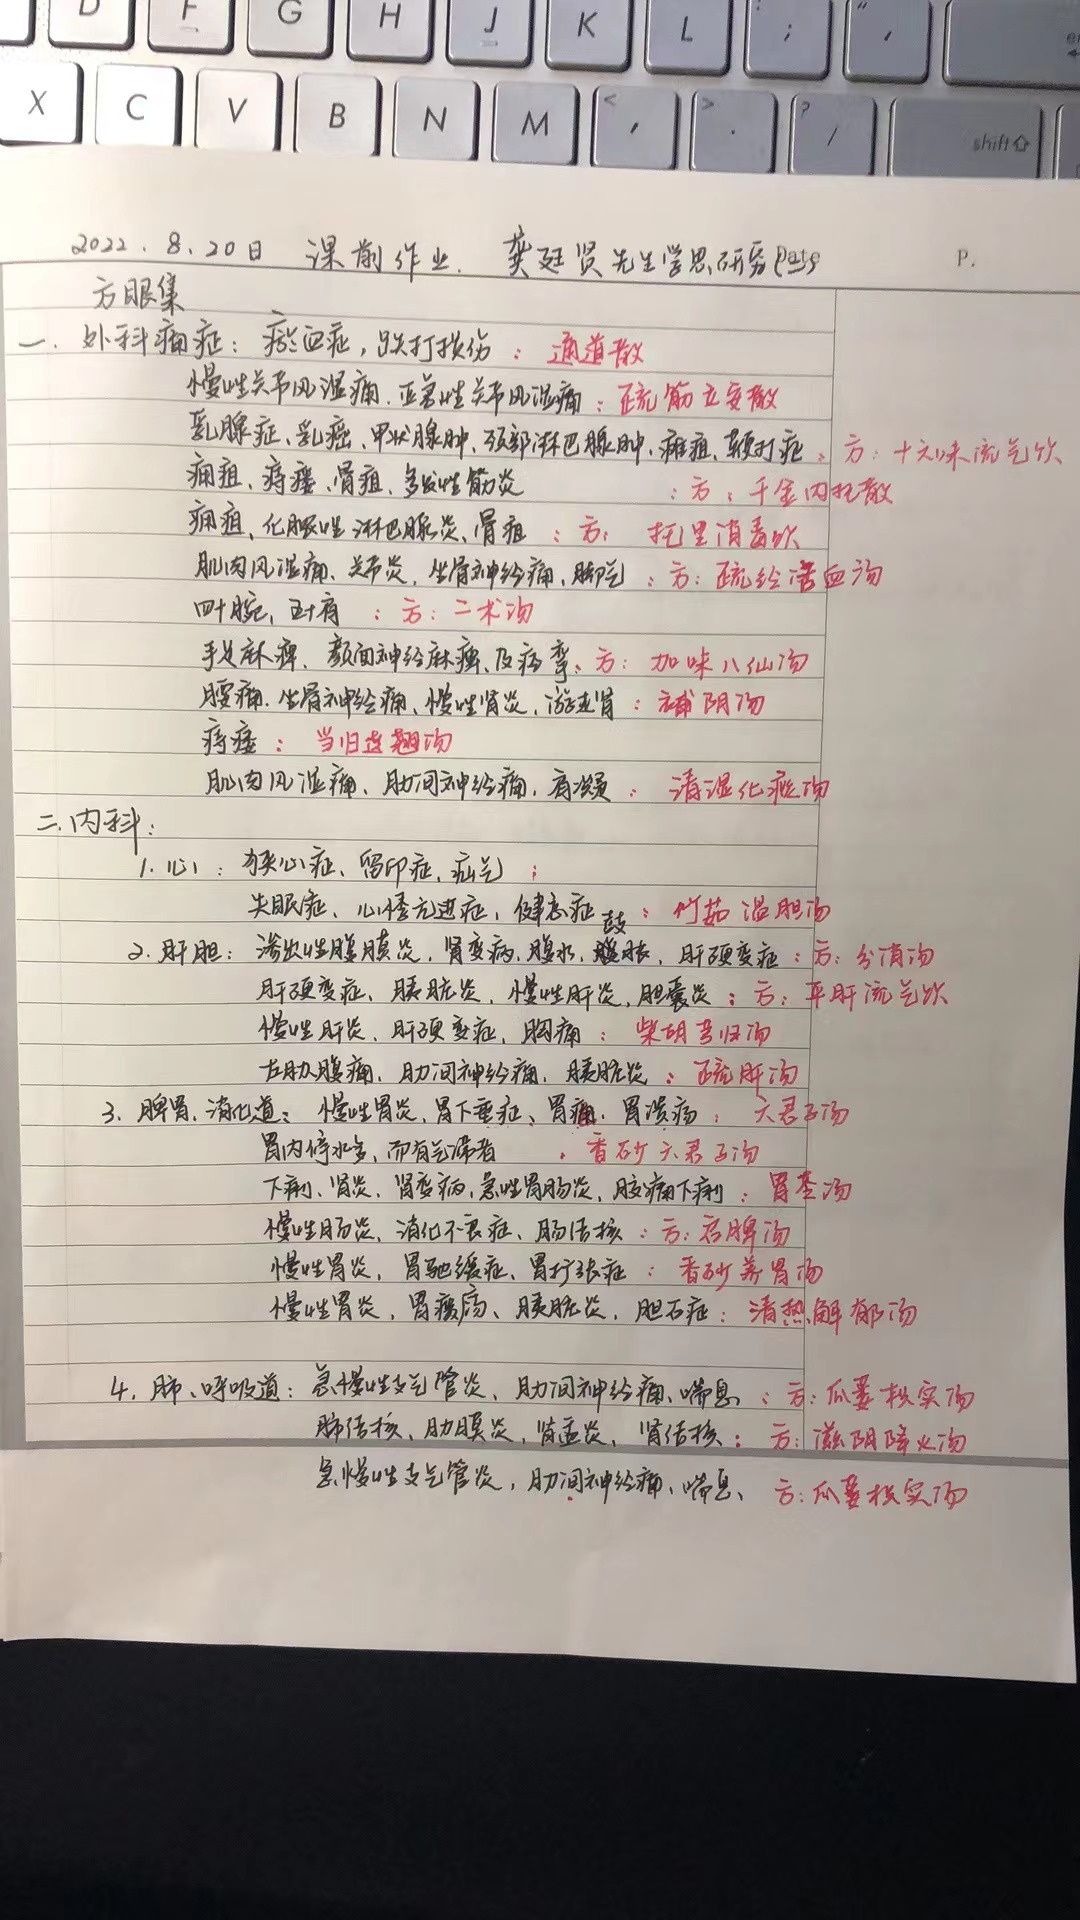 D F G H J K L ; ,
X C V B N M < , > . ? / shift
2022.8.20日 课前作业. 龚廷贤先生学思研究 Date P.
方眼集
一. 外科痛症: 瘀血症, 跌打损伤: 通道散
慢性关节风湿痛、亚急性关节风湿痛: 疏筋立安散
乳腺症、乳癌、甲状腺肿、颈部淋巴腺肿、瘫疽、鞭打症: 方: 十六味流气饮
痈疽、痔瘘、骨疽、多发性筋炎: 方: 千金内托散
痈疽、化脓性淋巴腺炎、骨疽: 方: 托里消毒饮
肌肉风湿痛、关节炎、坐骨神经痛、脚气: 方: 疏经活血汤
四十腕, 五十肩: 方: 二术汤
手足麻痹、颜面神经麻痹、及痉挛、方: 加味八仙汤
腰痛、坐骨神经痛、慢性肾炎、游走肾: 补阴汤
痔瘘: 当归连翘汤
肌肉风湿痛、肋间神经痛、肩凝: 清湿化痰汤
二.内科:
1. 心: 狭心症、留印症、疝气;
失眠症、心悸亢进症, 健忘症: 竹茹温胆汤
2. 肝胆: 渗出性腹膜炎, 肾变病、腹水、臌胀, 肝硬变症: 方: 分消汤
鼓
肝硬变症、胰脏炎, 慢性肝炎, 胆囊炎: 方: 平肝流气饮
慢性肝炎、肝硬变症, 胸痛: 柴胡芎归汤
左肋腹痛、肋间神经痛、胰脏炎: 疏肝汤
3. 脾胃、消化道: 慢性胃炎, 胃下垂症、胃痛、胃溃疡: 六君子汤
胃内停水多, 而有气滞者. 香砂六君子汤
下痢、肾炎、肾变病、急性胃肠炎, 腹痛下痢: 胃苓汤
慢性肠炎, 消化不良症、肠结核: 方: 启脾汤
慢性胃炎, 胃驰缓症、胃扩张症: 香砂养胃汤
慢性胃炎, 胃溃疡、胰脏炎, 胆石症: 清热解郁汤
4. 肺、呼吸道: 急慢性支气管炎、肋间神经痛、喘息: 方: 瓜蒌枳实汤
肺结核、肋膜炎, 肾盂炎、肾结核: 方: 滋阴降火汤
急慢性支气管炎, 肋间神经痛、喘息、方: 瓜蒌枳实汤